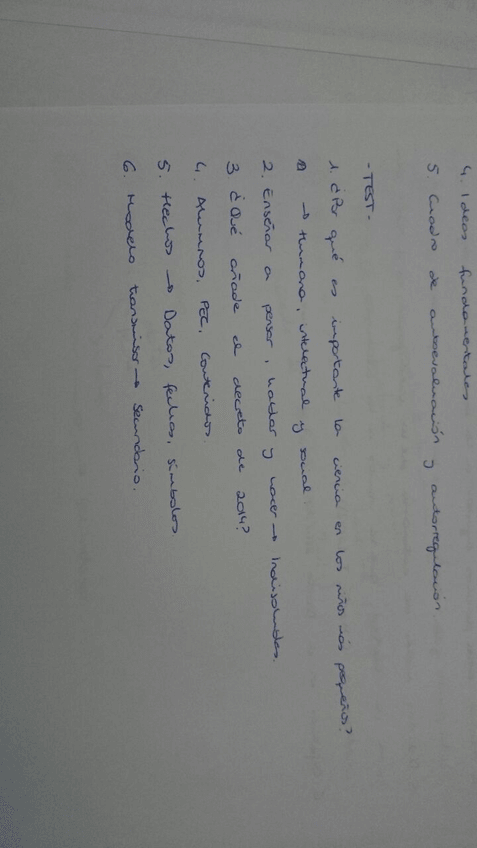 4. Ideas fundamentales
5. Cuadro de autoevaluación y autorregulación.
- TEST -
1. ¿Por qué es importante la ciencia en los niños más pequeños?
→ Humana, intelectual y social.
2. Enseñar a pensar, hablar y hacer → Indisolubles.
3. ¿Qué añade el decreto de 2014?
4. Alumnos, PEC, Contenidos.
5. Hechos → Datos, fechas, símbolos
6. Modelo transmisor → Secundaria.